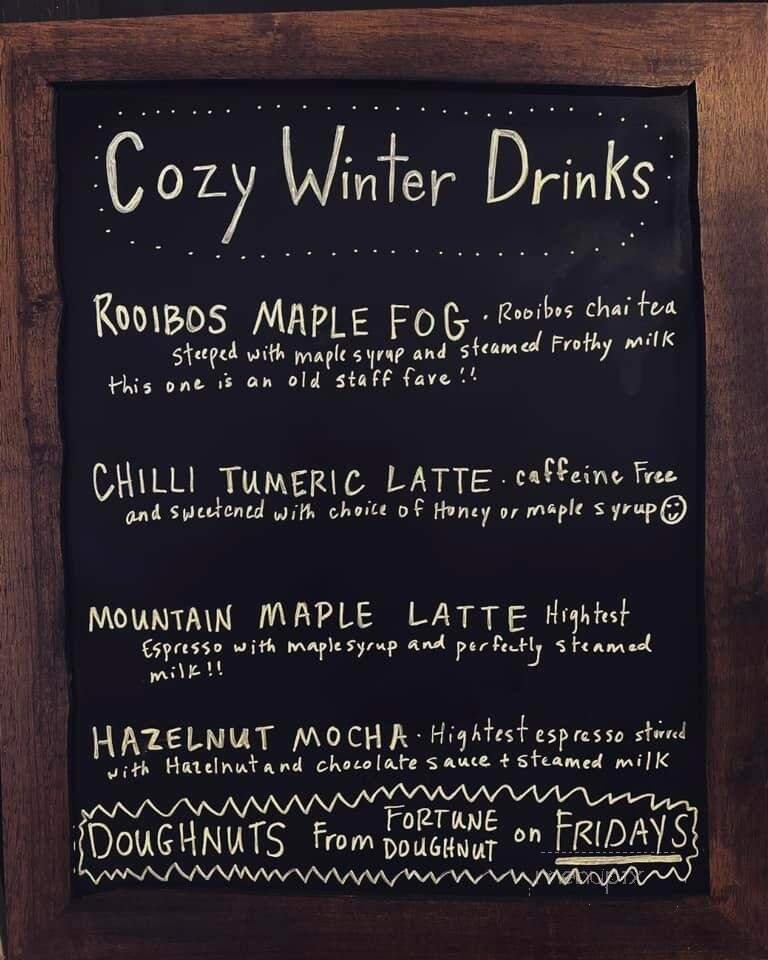 Cozy Winter Drinks
ROOIBOS MAPLE FOG · Rooibos chai tea
steeped with maple syrup and steamed Frothy milk
this one is an old staff fave!!
CHILLI TUMERIC LATTE · caffeine Free
and sweetened with choice of Honey or maple syrup
MOUNTAIN MAPLE LATTE Hightest
Espresso with maple syrup and perfectly steamed
milk!!
HAZELNUT MOCHA · Hightest espresso stirred
with Hazelnut and chocolate sauce + steamed milk
DOUGHNUTS From FORTUNE DOUGHNUT on FRIDAYS